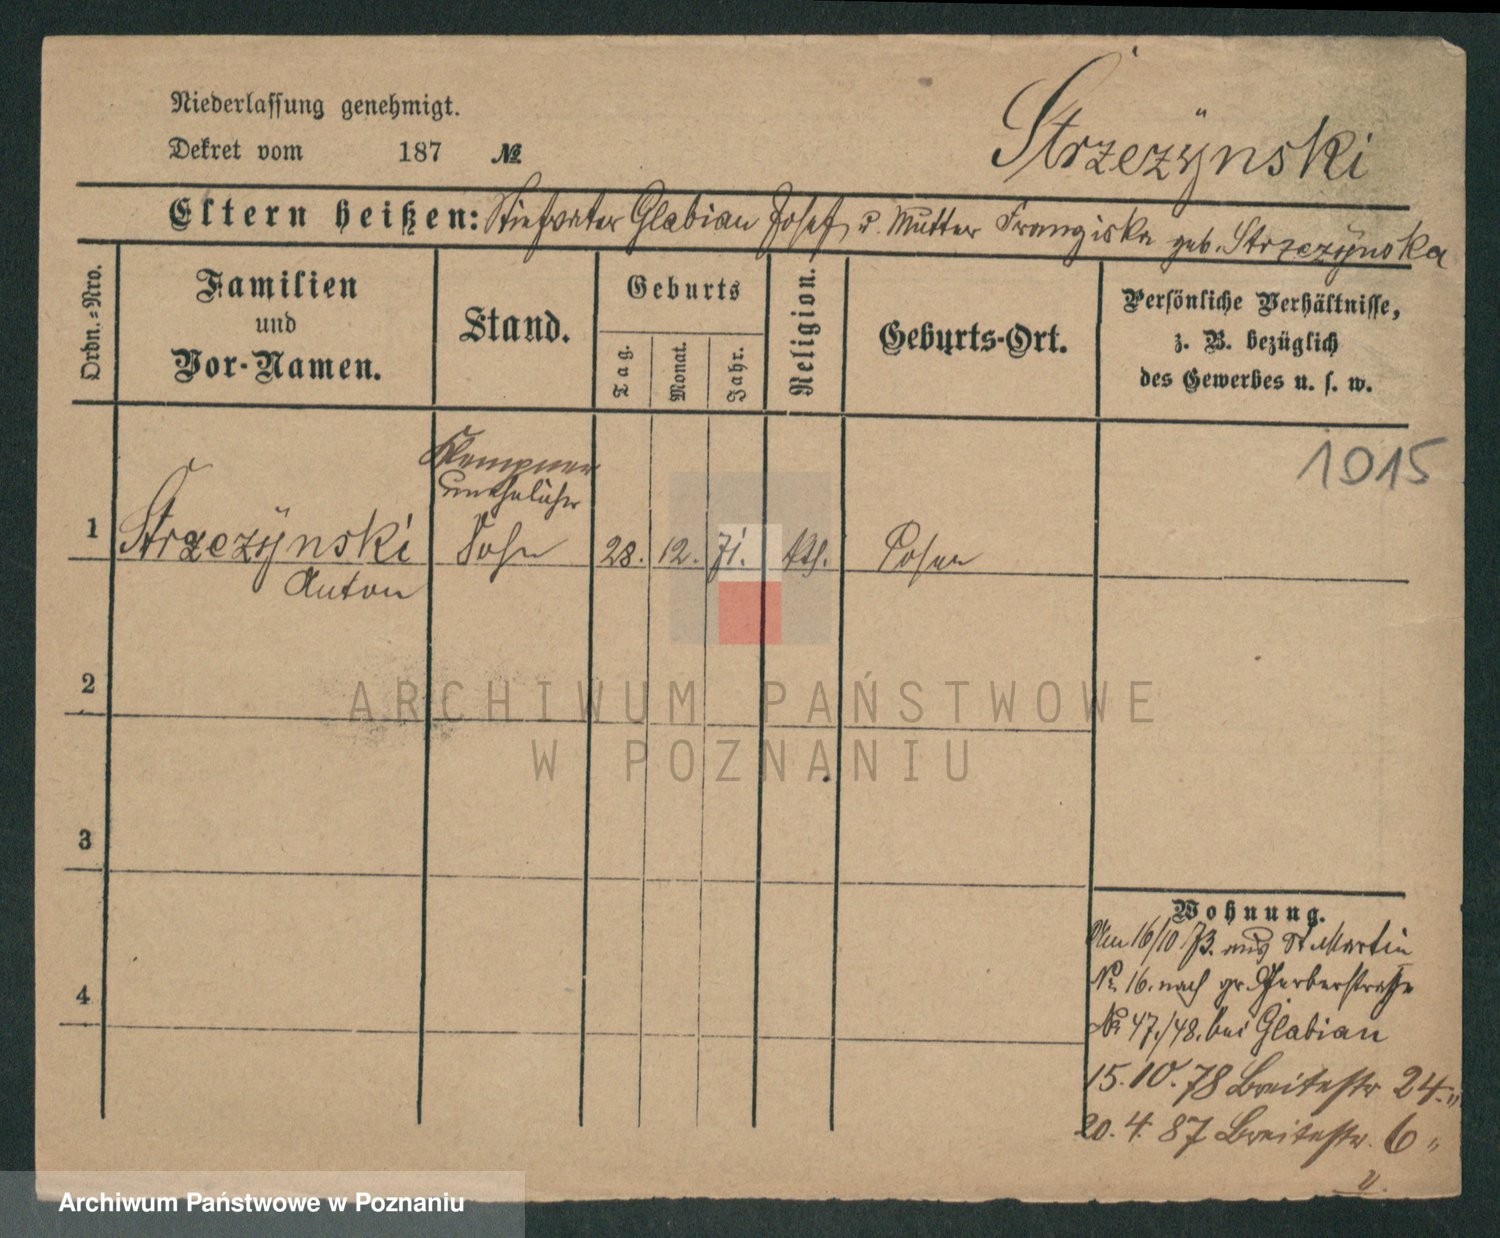 Niederlassung genehmigt.
Dekret vom 187 №
Strzezÿnski
Eltern heißen: Stiefvater Glabian Josef, u. Mutter Franziska geb. Strzezÿnska
Ordn.-Nro.
Familien
und
Vor-Namen.
Stand.
Geburts
Tag.
Monat.
Jahr.
Religion.
Geburts-Ort.
Persönliche Verhältnisse,
z. B. bezüglich
des Gewerbes u. s. w.
1015
Klempner
unehelicher
1 Strzezÿnski Sohn 28. 12. 71. kth. Posen
Anton
2
ARCHIWUM PAŃSTWOWE
W POZNANIU
3
4
Wohnung.
Am 16/10 73. aus St Martin
№ 16. nach gr. Gerberstraße
№ 47./48. bei Glabian
15.10.78 Breitestr 24."
20. 4. 87 Breitestr. 6"
Archiwum Państwowe w Poznaniu